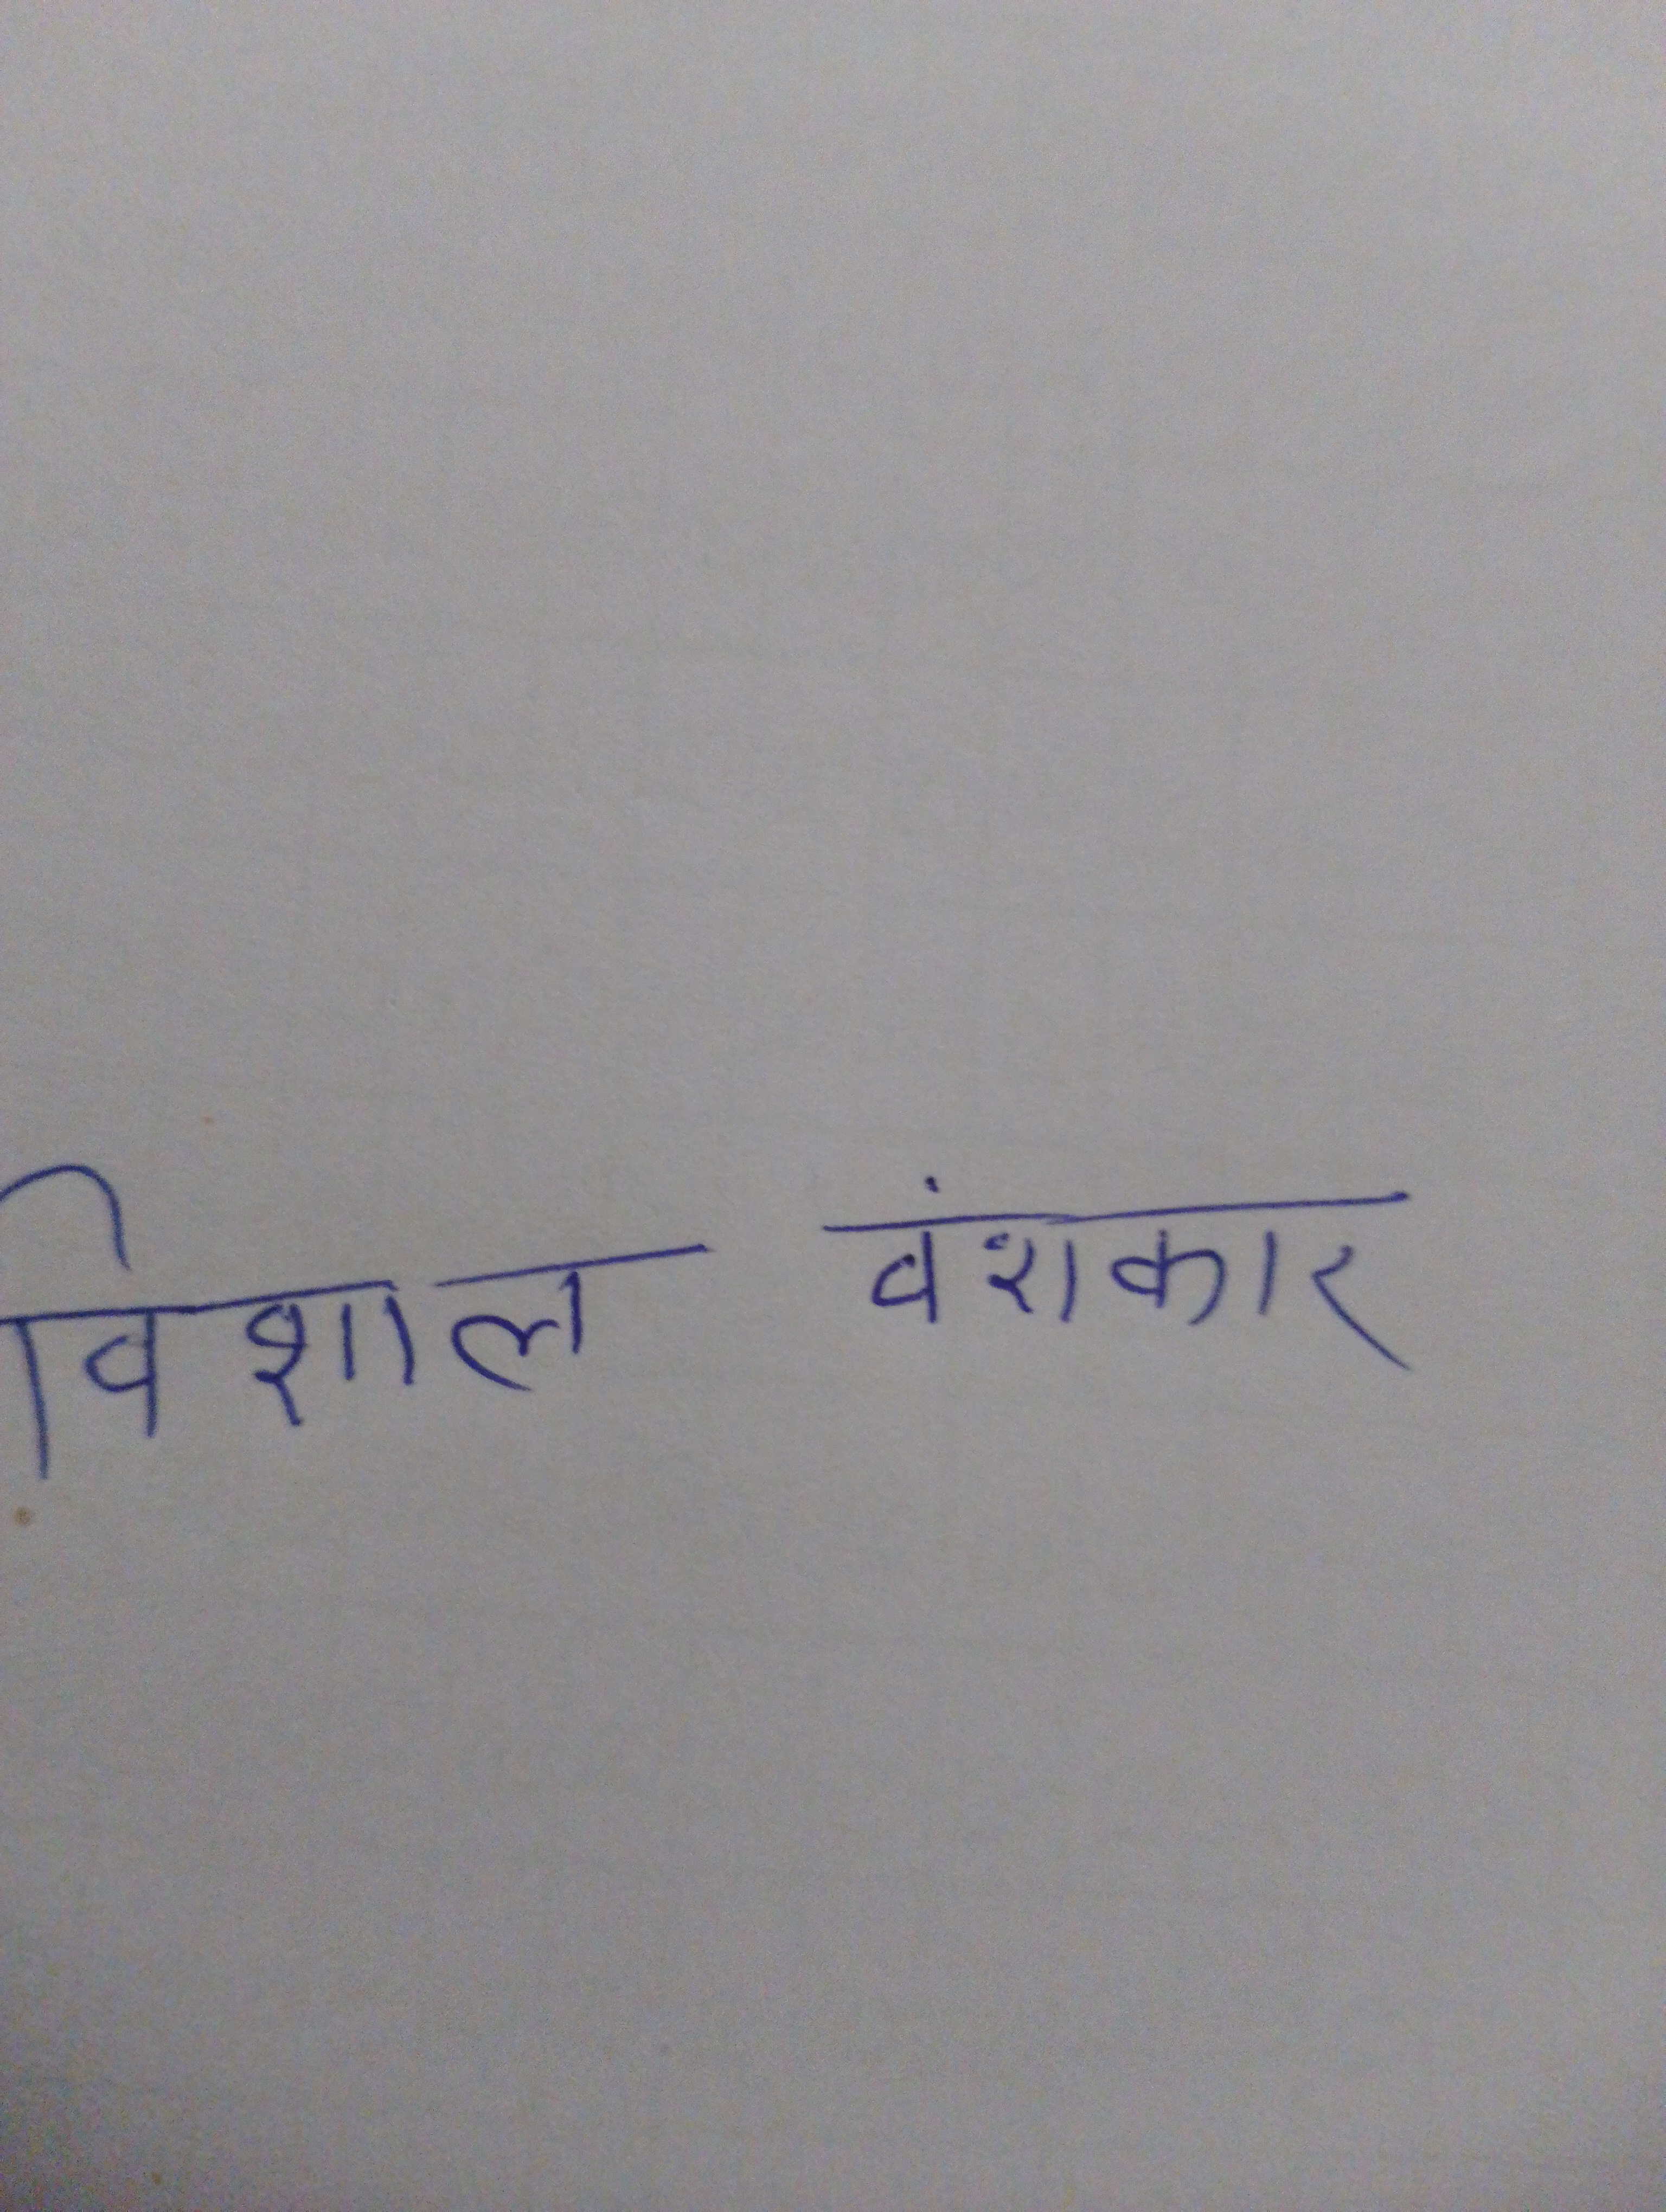 विशाल वंशकार